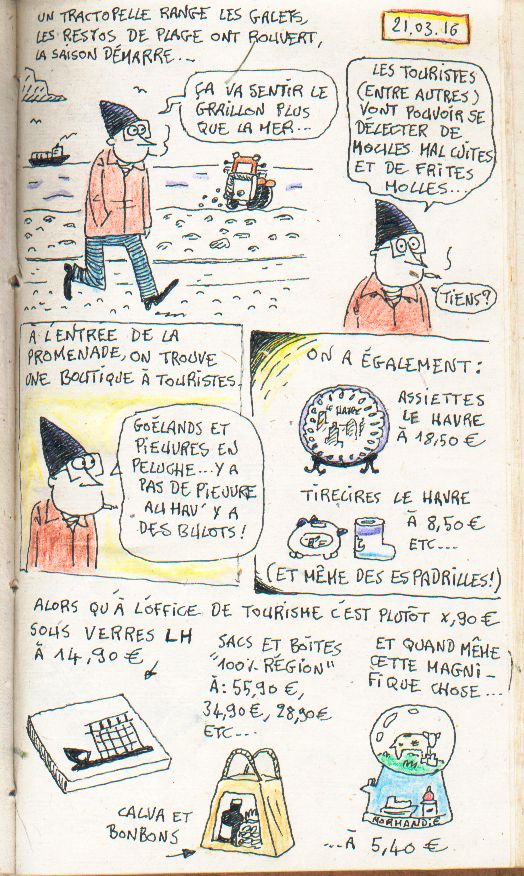 UN TRACTOPELLE RANGE LES GALETS,
LES RESTOS DE PLAGE ONT ROUVERT,
LA SAISON DÉMARRE...
21.03.16
ÇA VA SENTIR LE
GRAILLON PLUS
QUE LA MER...
LES TOURISTES
(ENTRE AUTRES)
VONT POUVOIR SE
DÉLECTER DE
MOULES MAL CUITES
ET DE FRITES
MOLLES...
TIENS?
À L'ENTRÉE DE LA
PROMENADE, ON TROUVE
UNE BOUTIQUE À TOURISTES.
GOÉLANDS ET
PIEUVRES EN
PELUCHE... Y A
PAS DE PIEUVRE
AU HAV' Y A
DES BULOTS!
ON A ÉGALEMENT:
LE HAVRE
ASSIETTES
LE HAVRE
À 18,50 €
TIRELIRES LE HAVRE
À 8,50 €
ETC...
(ET MÊME DES ESPADRILLES!)
ALORS QU'À L'OFFICE DE TOURISME C'EST PLUTÔT X,90 €
SOUS VERRES LH
À 14,90 €
SACS ET BOÎTES
"100% RÉGION"
À: 55,90 €,
34,90 €, 28,90 €
ETC...
CALVA ET
BONBONS
ET QUAND MÊME
CETTE MAGNI-
FIQUE CHOSE...
NORMANDIE
...À 5,40 €